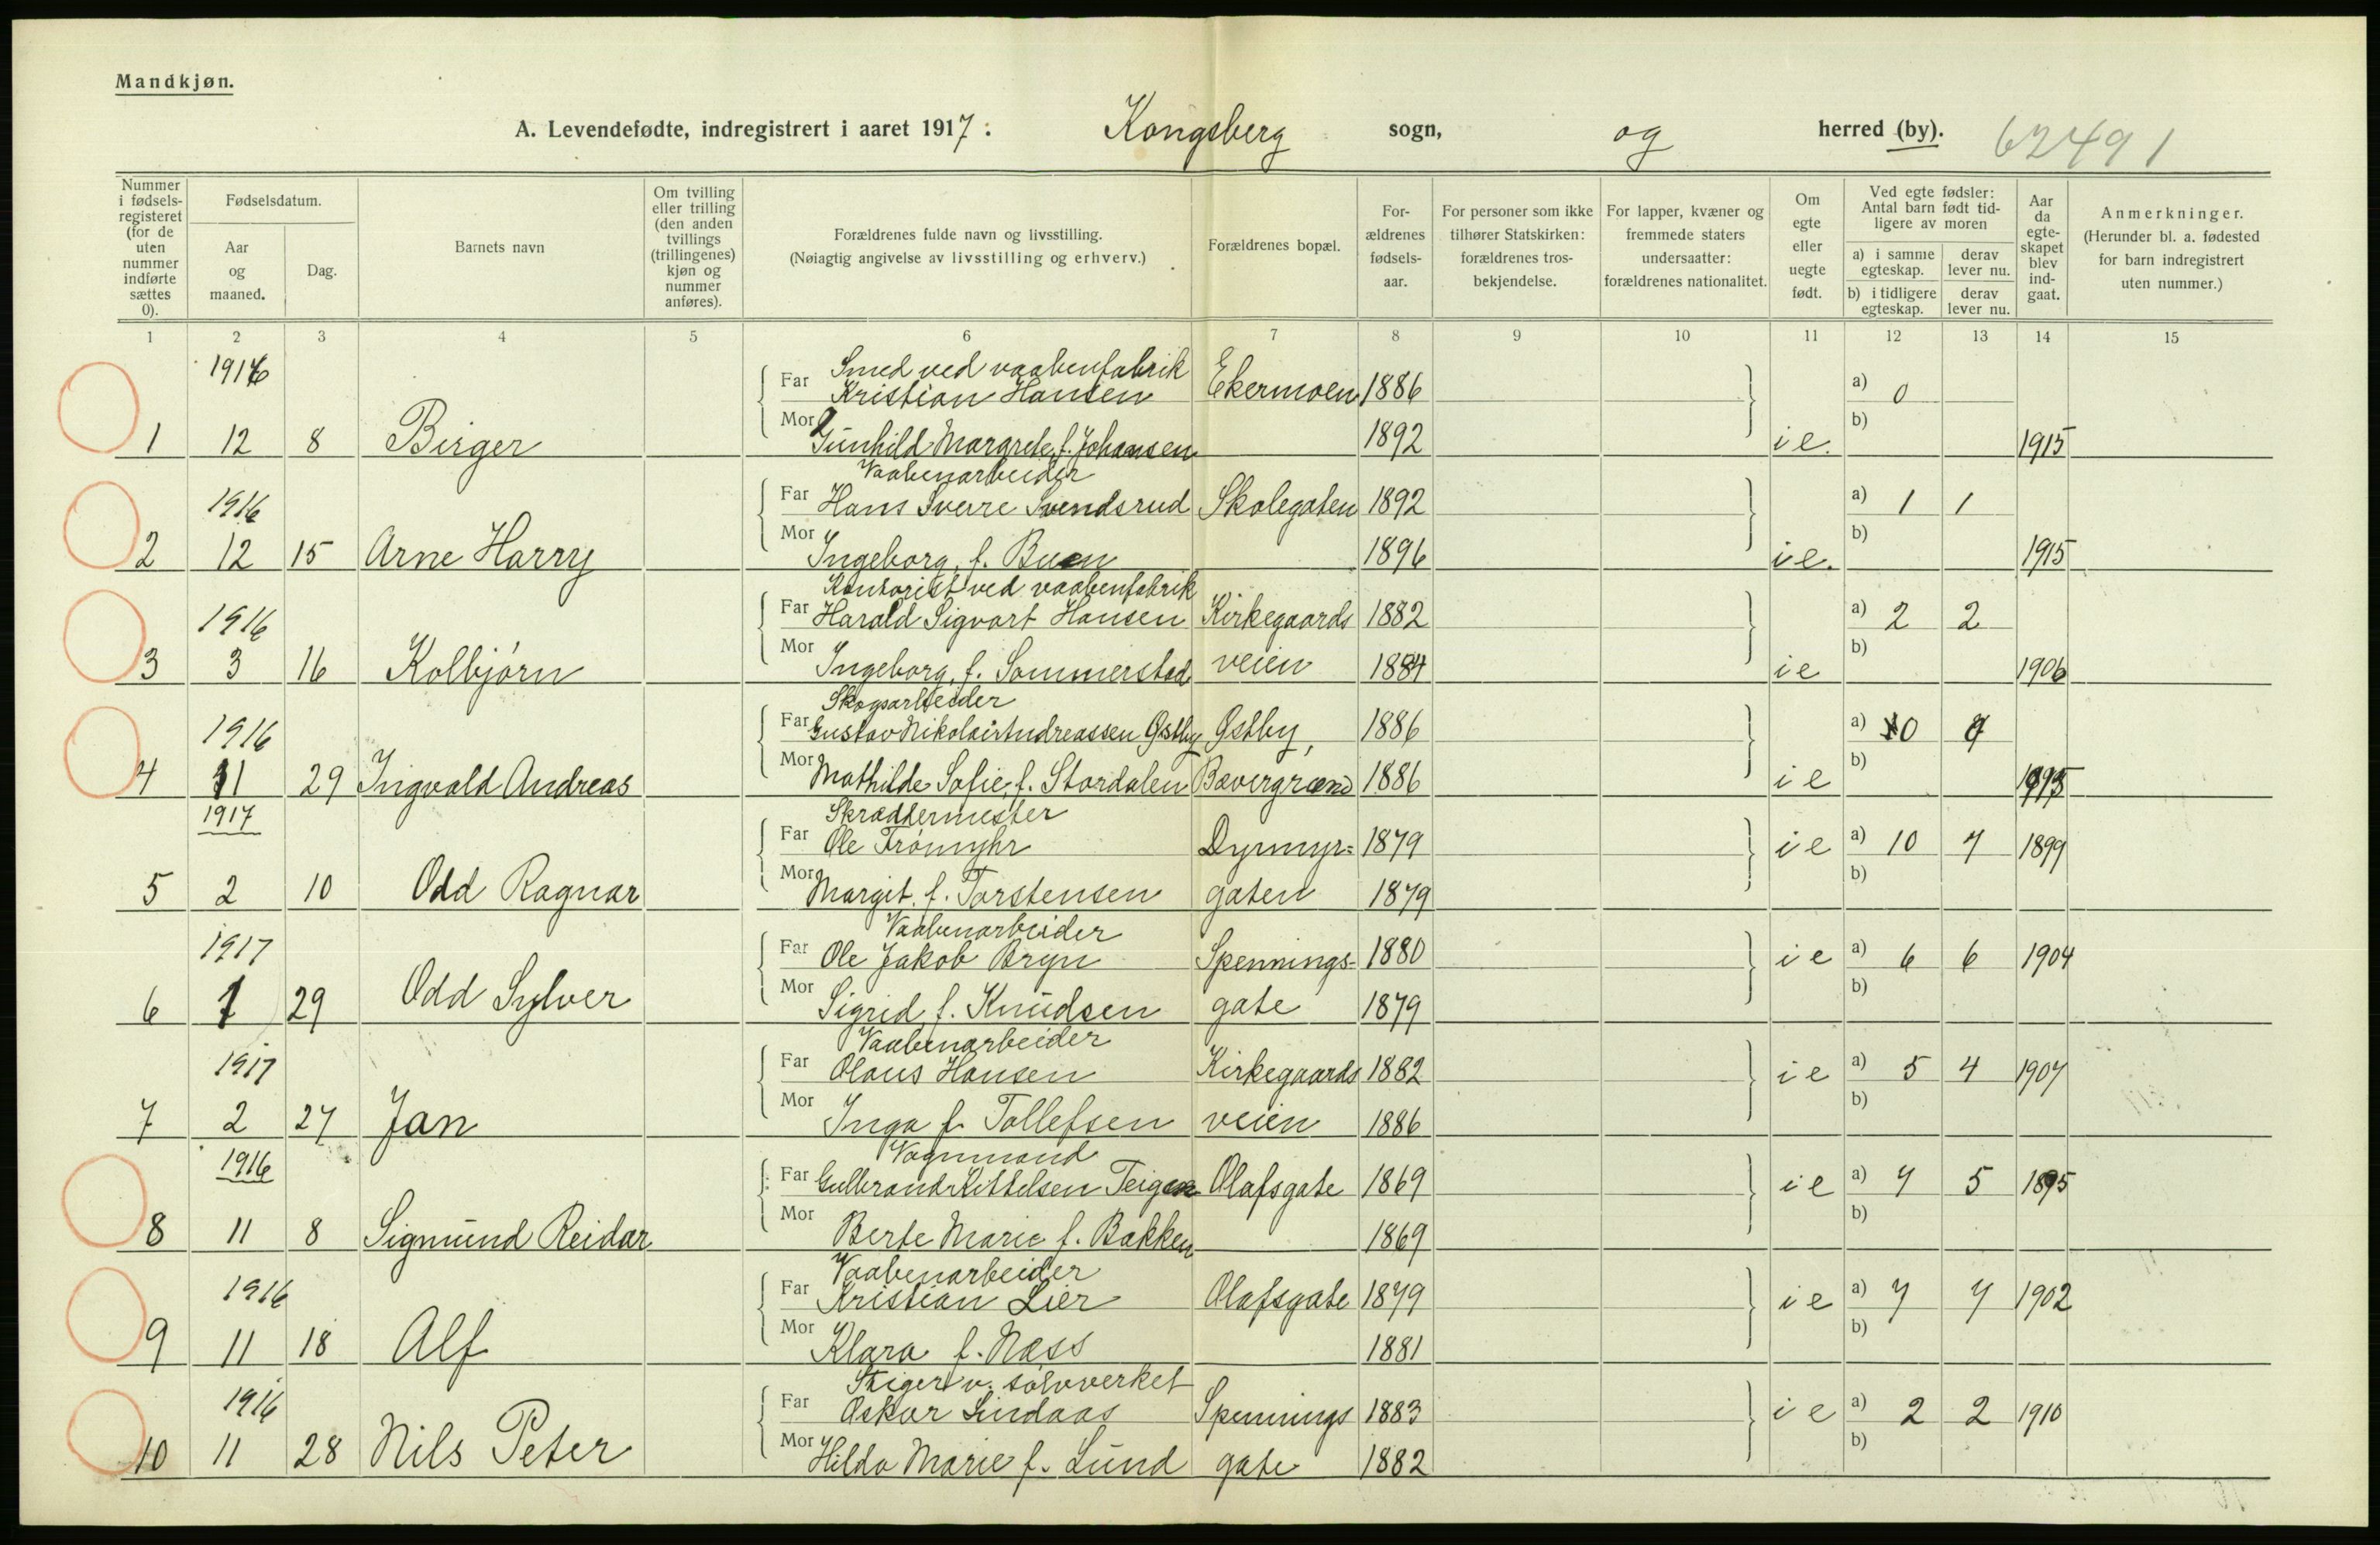 Mandkjøn.
A. Levendefødte, indregistrert i aaret 1917 : Kongsberg sogn, og herred (by). 62491
Nummer i fødsels-registeret (for de uten nummer indførte sættes 0).
Fødselsdatum.
Aar og maaned.
Dag.
Barnets navn
Om tvilling eller trilling (den anden tvillings (trillingenes) kjøn og nummer anføres).
Forældrenes fulde navn og livsstilling.
(Nøiagtig angivelse av livsstilling og erhverv.)
Forældrenes bopæl.
For-ældrenes fødsels-aar.
For personer som ikke tilhører Statskirken: forældrenes tros-bekjendelse.
For lapper, kvæner og fremmede staters undersaatter: forældrenes nationalitet.
Om egte eller uegte født.
Ved egte fødsler: Antal barn født tid-ligere av moren
a) i samme egteskap.
derav lever nu.
b) i tidligere egteskap.
derav lever nu.
Aar da egte-skapet blev ind-gaat.
Anmerkninger.
(Herunder bl. a. fødested for barn indregistrert uten nummer.)
1 2 3 4 5 6 7 8 9 10 11 12 13 14 15
1916 Smed ved vaabenfabrik
Far Kristian Hansen Ekermoen 1886 a) 0
1 12 8 Birger Mor Gunhild Margrete, f. Johansen 1892 ie. b) 1915
Vaabenarbeider
1916 Far Hans Sverre Svendsrud Skolegaten 1892 a) 1 1
2 12 15 Arne Harry Mor Ingeborg, f. Buen 1896 ie. b) 1915
Kontorist ved vaabenfabrik
1916 Far Harald Sigvart Hansen Kirkegaards 1882 a) 2 2
3 3 16 Kolbjørn Mor Ingeborg, f. Sommerstad veien 1884 ie b) 1906
Skogsarbeider
1916 Far Gustav Nikolai Andreassen Østby Østby, 1886 a) 0
4 11 29 Ingvald Andreas Mor Mathilde Sofie, f. Stordalen Bævergrænd 1886 ie b)
1917 Skræddermester
Far Ole Trømyhr Dyrmyr= 1879 ie a) 10 7 1899
5 2 10 Odd Ragnar Mor Margit, f. Torstensen gaten 1879 b)
Vaabenarbeider
1917 Far Ole Jakob Bryn Spennings- 1880 ie a) 6 6 1904
6 1 29 Odd Sylver Mor Sigrid f. Knudsen gate 1879 b)
Vaabenarbeider
1917 Far Olaus Hansen Kirkegaards 1882 ie a) 5 4 1907
7 2 27 Jan Mor Inga f. Tollefsen veien 1886 b)
Vognmand
1916 Far Gulbrand Kittelsen Teigen Olafsgate 1869 ie a) 7 5 1895
8 11 8 Sigmund Reidar Mor Berte Marie f. Bakken 1869 b)
Vaabenarbeider
1916 Far Kristian Lier Olafsgate 1879 ie a) 7 7 1902
9 11 18 Alf Mor Klara f. Næss 1881 b)
Stiger v. sølvverket
1916 Far Oskar Lindaas Spennings 1883 ie a) 2 2 1910
10 11 28 Nils Peter Mor Hilda Marie f. Lund gate 1882 b)